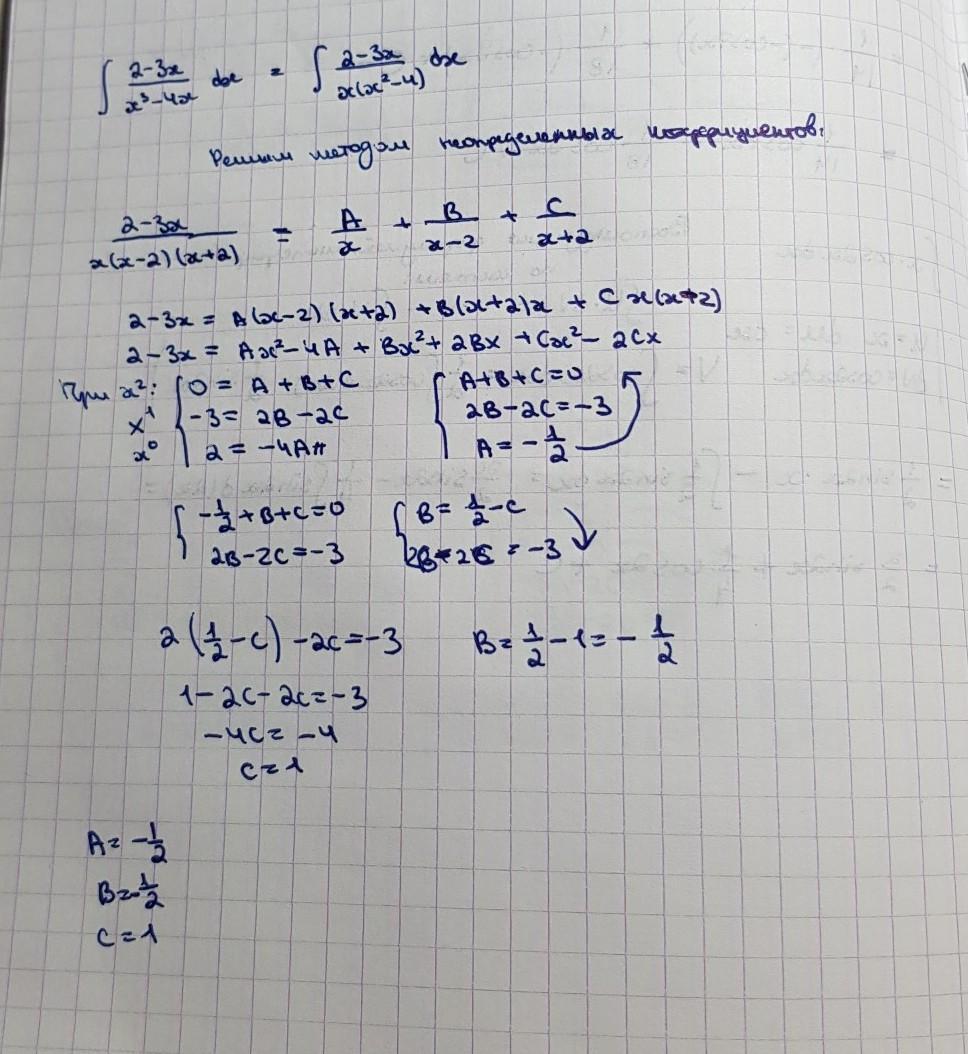 ∫ (2-3x)/(x³-4x) dx = ∫ (2-3x)/(x(x²-4)) dx
Решим методом неопределенных коэффициентов:
(2-3x)/(x(x-2)(x+2)) = A/x + B/(x-2) + C/(x+2)
2-3x = A(x-2)(x+2) + B(x+2)x + Cx(x-2)
2-3x = Ax²-4A + Bx²+2Bx + Cx²-2Cx
При x²: { 0 = A+B+C { A+B+C=0
x¹ -3 = 2B-2C 2B-2C=-3
x⁰ 2 = -4A A = -1/2
{ -1/2+B+C=0 { B = 1/2-C
2B-2C=-3 2B-2C=-3
2(1/2-C)-2C=-3 B=1/2-1=-1/2
1-2C-2C=-3
-4C=-4
C=1
A=-1/2
B=-1/2
C=1